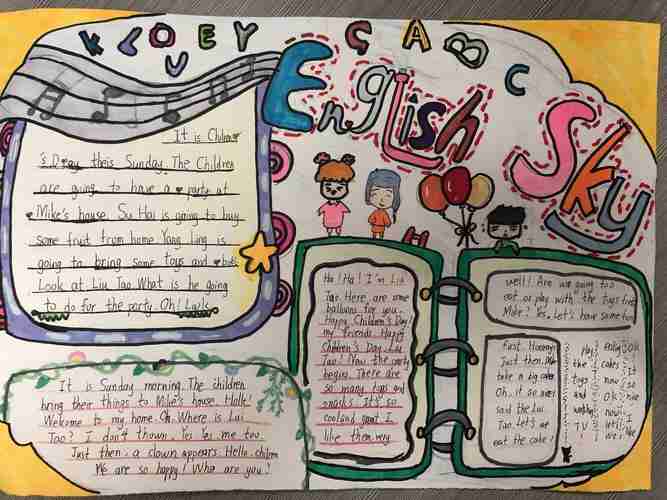 K L O V E Y
C A B C
English
Sky
It is Children
's Day theis Sunday. The Children
are going to have a party at
Mike's house. Su Hai is going to buy
some fruit from home Yang Ling is
going to bring some toys and
Look at Liu Tao. What is he going
to do for the party. Oh! Look
It is Sunday morning. The children
bring their things to Mike's house. Hello!
Welcome to my home. Oh. Where is Lui
Tao? I don't me too.
Just then, a clown appears. Hello.
We are so happy! Who are you?
H
Ha! Ha! I'm Liu
Tao. Here are some
balloons for you.
Happy Children's Day!
my friends. Happy
Children's Day. Liu
Tao! Now the party
begins. There are
so many toys and
snacks. It's so
cooland I
like them very
well! Are we going to
eat or play with the toys first
Mike? Yes. Let's have some
first. Hooray!
Just then.
take a big cake
Oh. it so nice
said the Liu
Tao. Let's
eat the cake!
the cakes It
toys now is
and OK nice
now
TV let's